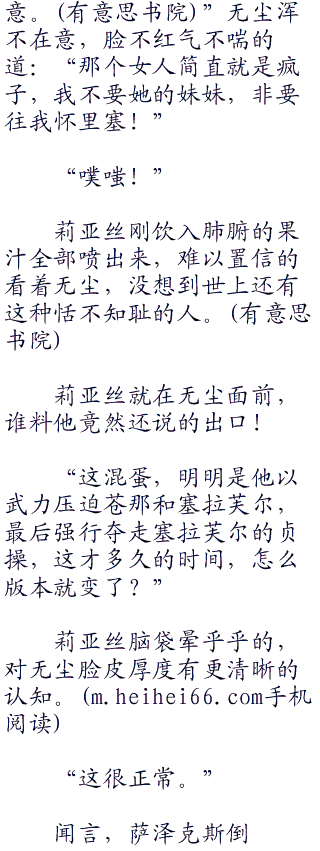 意。(有意思书院)”无尘浑
不在意，脸不红气不喘的
道：“那个女人简直就是疯
子，我不要她的妹妹，非要
往我怀里塞！”
“噗嗤！”
莉亚丝刚饮入肺腑的果
汁全部喷出来，难以置信的
看着无尘，没想到世上还有
这种恬不知耻的人。(有意思
书院)
莉亚丝就在无尘面前，
谁料他竟然还说的出口！
“这混蛋，明明是他以
武力压迫苍那和塞拉芙尔，
最后强行夺走塞拉芙尔的贞
操，这才多久的时间，怎么
版本就变了？”
莉亚丝脑袋晕乎乎的，
对无尘脸皮厚度有更清晰的
认知。(m.heihei66.com手机
阅读)
“这很正常。”
闻言，萨泽克斯倒